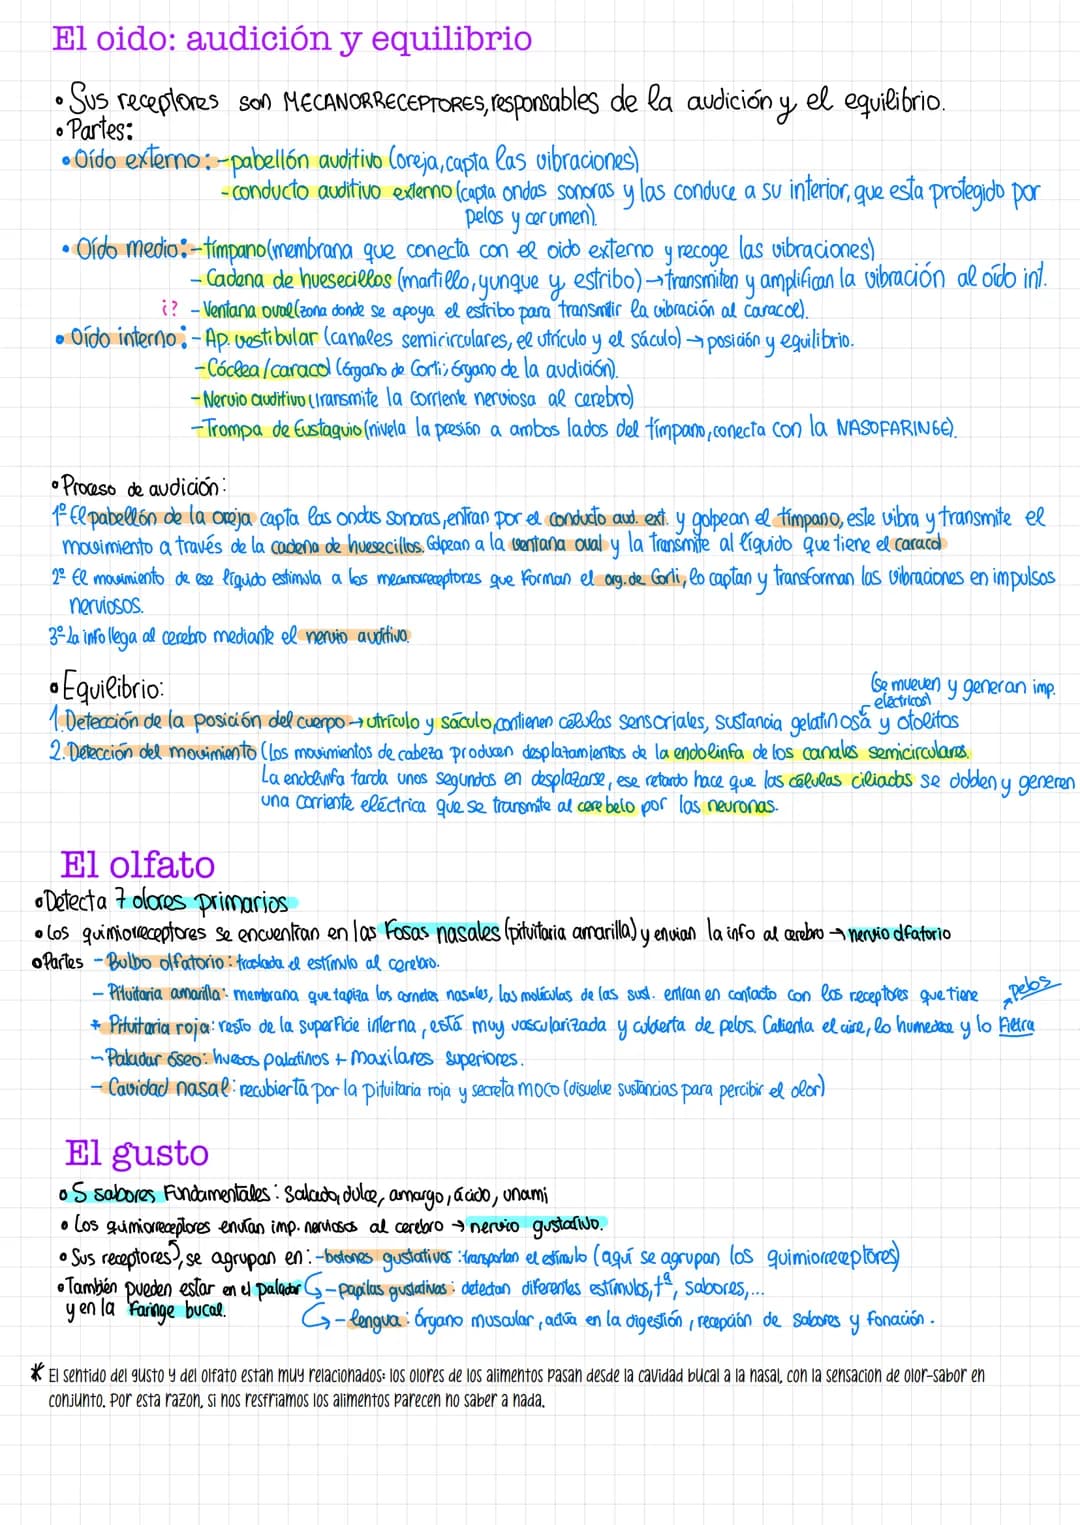 El oido: audición y equilibrio
• Sus receptores son MECANORRECEPTORES, responsables de la audición y el equilibrio.
• Partes:
• Oído externo: -pabellón auditivo (oreja, capta las vibraciones)
-conducto auditivo externo (capta ondas sonoras y las conduce a su interior, que esta protegido por
pelos y cerumen).
• Oído medio: -tímpano (membrana que conecta con el oido externo y recoge las vibraciones)
- Cadena de huesecillos (martillo, yunque y estribo) → transmiten y amplifican la vibración al oído int.
¿? - Ventana oval (zona donde se apoya el estribo para transmitir la vibración al caracol).
• Oído interno: - Ap. vestibular (canales semicirculares, el utrículo y el sáculo) → posición y equilibrio.
- Cóclea/caracol (órgano de Corti; órgano de la audición).
- Nervio auditivo (transmite la corriente nerviosa al cerebro)
- Trompa de Eustaquio (nivela la presión a ambos lados del tímpano, conecta con la NASOFARINGE).
• Proceso de audición:
1º El pabellón de la oreja capta las ondas sonoras, entran por el conducto aud. ext. y golpean el tímpano, este vibra y transmite el
movimiento a través de la cadena de huesecillos. Golpean a la ventana oval y la transmite al líquido que tiene el caracol
2º El movimiento de ese líquido estimula a los mecanorreceptores que forman el org. de Corti, lo captan y transforman las vibraciones en impulsos
nerviosos.
3º La info llega al cerebro mediante el nervio auditivo.
• Equilibrio:
(se mueven y generan imp.
eléctricos)
1. Detección de la posición del cuerpo → utrículo y sáculo, contienen células sensoriales, sustancia gelatinosa y otolitos
2. Detección del movimiento (los movimientos de cabeza producen desplazamientos de la endolinfa de los canales semicirculares.
La endolinfa tarda unos segundos en desplazarse, ese retardo hace que las células ciliadas se doblen y generen
una corriente eléctrica que se transmite al cerebelo por las neuronas.
El olfato
• Detecta 7 olores primarios
• Los quimiorreceptores se encuentran en las Fosas nasales (pituitaria amarilla) y envian la info al cerebro → nervio olfatorio
• Partes - Bulbo olfatorio: traslada el estímulo al cerebro.
- Pituitaria amarilla: membrana que tapiza los cornetes nasales, las moléculas de las sust. entran en contacto con los receptores que tiene pelos
* Pituitaria roja: resto de la superficie interna, está muy vascularizada y cubierta de pelos. Calienta el aire, lo humedece y lo Filtra
- Paladar óseo: huesos palatinos + maxilares superiores.
- Cavidad nasal: recubierta por la pituitaria roja y secreta moco (disuelve sustancias para percibir el olor)
El gusto
• 5 sabores Fundamentales: Salado, dulce, amargo, ácido, unami
• Los quimiorreceptores envían imp. nerviosos al cerebro → nervio gustativo.
• Sus receptores, se agrupan en: -botones gustativos: transportan el estímulo (aquí se agrupan los quimiorreceptores)
• También pueden estar en el paladar - papilas gustativas: detectan diferentes estímulos, tª, sabores,...
y en la faringe bucal. - lengua: Órgano muscular, actúa en la digestión, recepción de sabores y fonación.
* El sentido del gusto y del olfato estan muy relacionados: los olores de los alimentos pasan desde la cavidad bucal a la nasal, con la sensacion de olor-sabor en
conjunto. Por esta razon, si nos resfriamos los alimentos parecen no saber a nada.